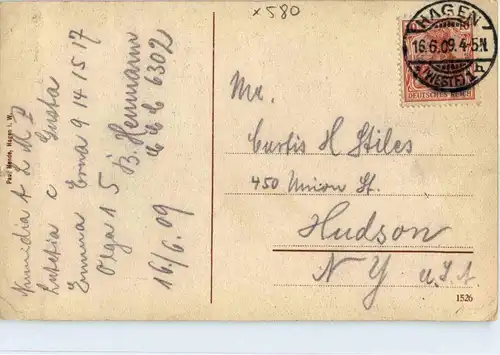 x 580
HAGEN
16.6.09.4-5N.
(WESTF.) 1h
DEUTSCHES REICH
Mr.
Curtis H Stiles
450 Union St.
Hudson
N Y U.S.A
1526
Paul Hende, Hagen i. W.
Numidia A L d P
Lutetia C Gusta
Emma Erna 9 14 15 17
Olga 1 5 B. Hermann
6302
16/6. 09